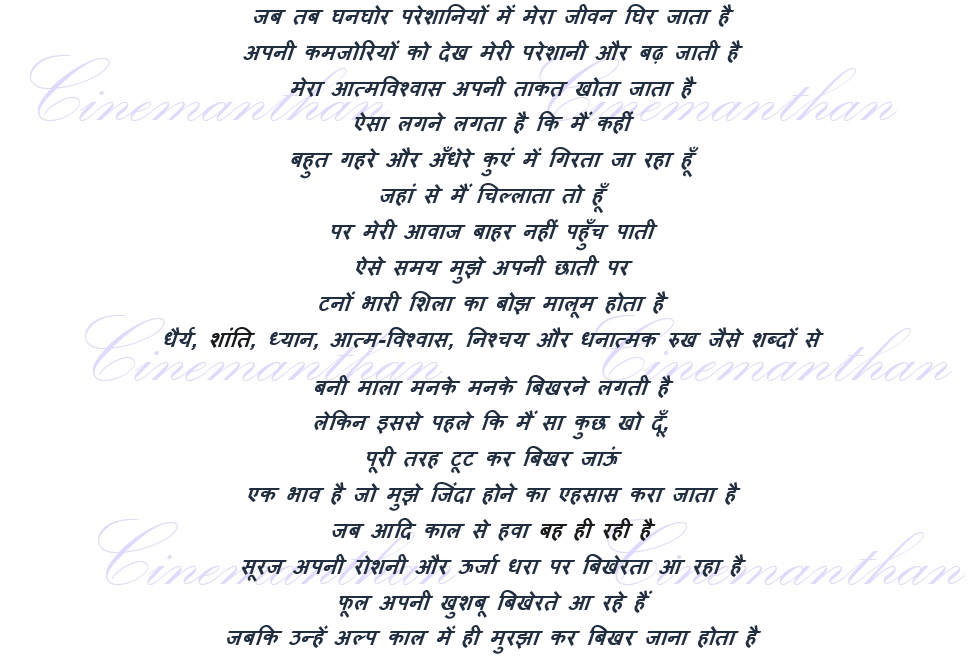 जब तब घनघोर परेशानियों में मेरा जीवन घिर जाता है
अपनी कमजोरियों को देख मेरी परेशानी और बढ़ जाती है
Cinemanthan Cinemanthan
मेरा आत्मविश्वास अपनी ताकत खोता जाता है
ऐसा लगने लगता है कि मैं कहीं
बहुत गहरे और अँधेरे कुएं में गिरता जा रहा हूँ
जहां से मैं चिल्लाता तो हूँ
पर मेरी आवाज बाहर नहीं पहुँच पाती
ऐसे समय मुझे अपनी छाती पर
टनों भारी शिला का बोझ मालूम होता है
धैर्य, शांति, ध्यान, आत्म-विश्वास, निश्चय और धनात्मक रुख जैसे शब्दों से
Cinemanthan Cinemanthan
बनी माला मनके मनके बिखरने लगती है
लेकिन इससे पहले कि मैं सा कुछ खो दूँ,
पूरी तरह टूट कर बिखर जाऊं
एक भाव है जो मुझे जिंदा होने का एहसास करा जाता है
जब आदि काल से हवा बह ही रही है
सूरज अपनी रोशनी और ऊर्जा धरा पर बिखेरता आ रहा है
Cinemanthan Cinemanthan
फूल अपनी खुशबू बिखेरते आ रहे हैं
जबकि उन्हें अल्प काल में ही मुरझा कर बिखर जाना होता है